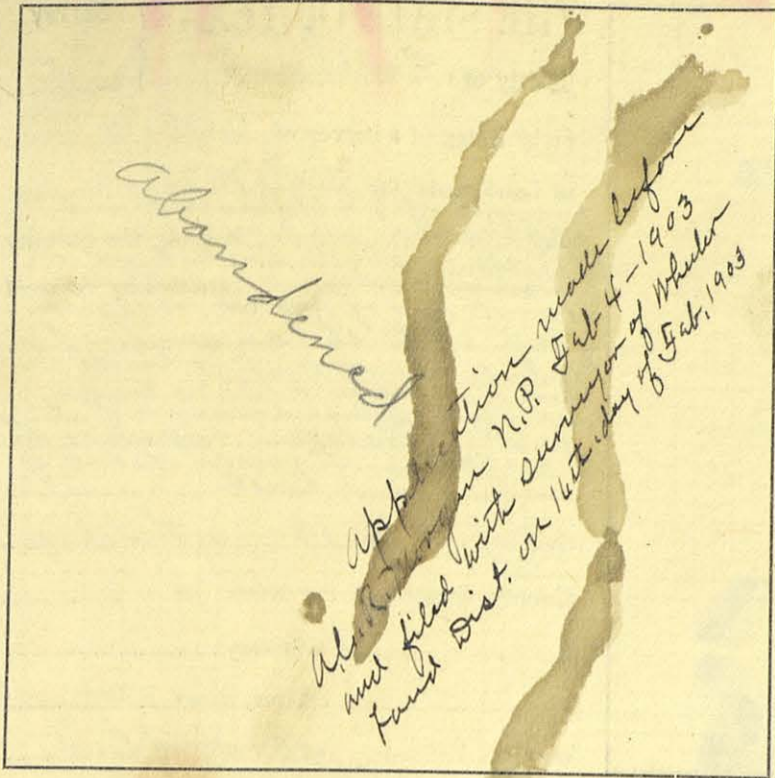 Abandened
Application made before
B. Morgan N.P. Feb 4-1903
and filed with surveyor of Wheeler
Land Dist. on 16th. day of Feb, 1903